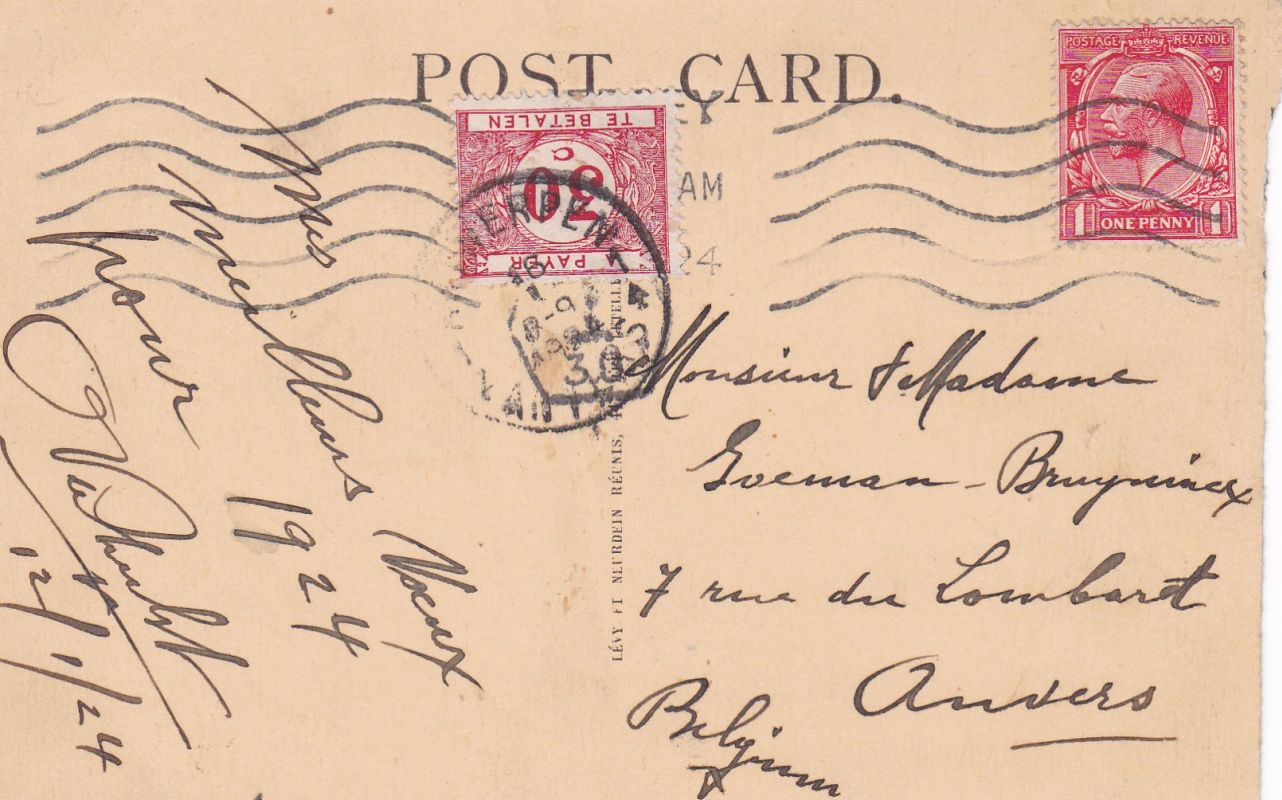 POST CARD.
POSTAGE REVENUE
1 ONE PENNY 1
TE BETALEN
30
C
A PAYER
AM
24
1924
30
Mes
meilleurs Voeux
pour 1924
12/1/24
LÉVY ET NEURDEIN RÉUNIS,
Monsieur & Madame
Goeman - Bruyninckx
7 rue du Lombart
Anvers
Belgium